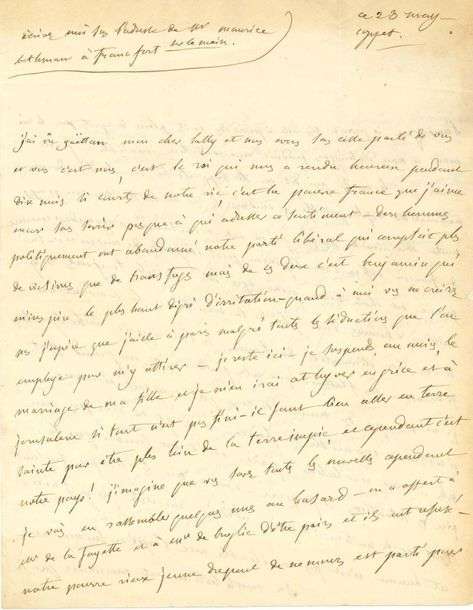 écrivez moi sous l'adresse de Mr maurice
bethman à francfort sur le main.
ce 23 may
coppet.
j'ai vu gaëtan mon cher lally et nous avons sans cesse parlé de vous
et vous c'est nous, c'est le roi qui nous a rendu heureux pendant
dix mois si courts de notre vie, c'est la pauvre france que j'aime
mais sans savoir presque à qui adresser ce sentiment – des hommes
politiquement ont abandonné notre parti libéral qui comptait plus
de victimes que de transfuges mais de ces deux c'est benjamin qui
m'inspire le plus haut degré d'irritation – quand à moi vous me croirez
pas j'espère que j'aille à paris malgré toutes les séductions que l'on
employe pour m'y attirer – je reste ici – je suspends au moins le
mariage de ma fille et je m'en irai cet hyver en grèce et à
jerusalem si tout n'est pas fini – il faut bien aller en terre
sainte pour être plus loin de la terre impie et cependant c'est
notre pays! j'imagine que vous savez toutes les nouvelles cependant
je vais en rassembler quelques unes au hasard – on a offert à
Mr de la fayette et à Mr de broglie d'être pairs et ils ont refusé –
notre pauvre vieux jeune dupont de nemours est parti pour